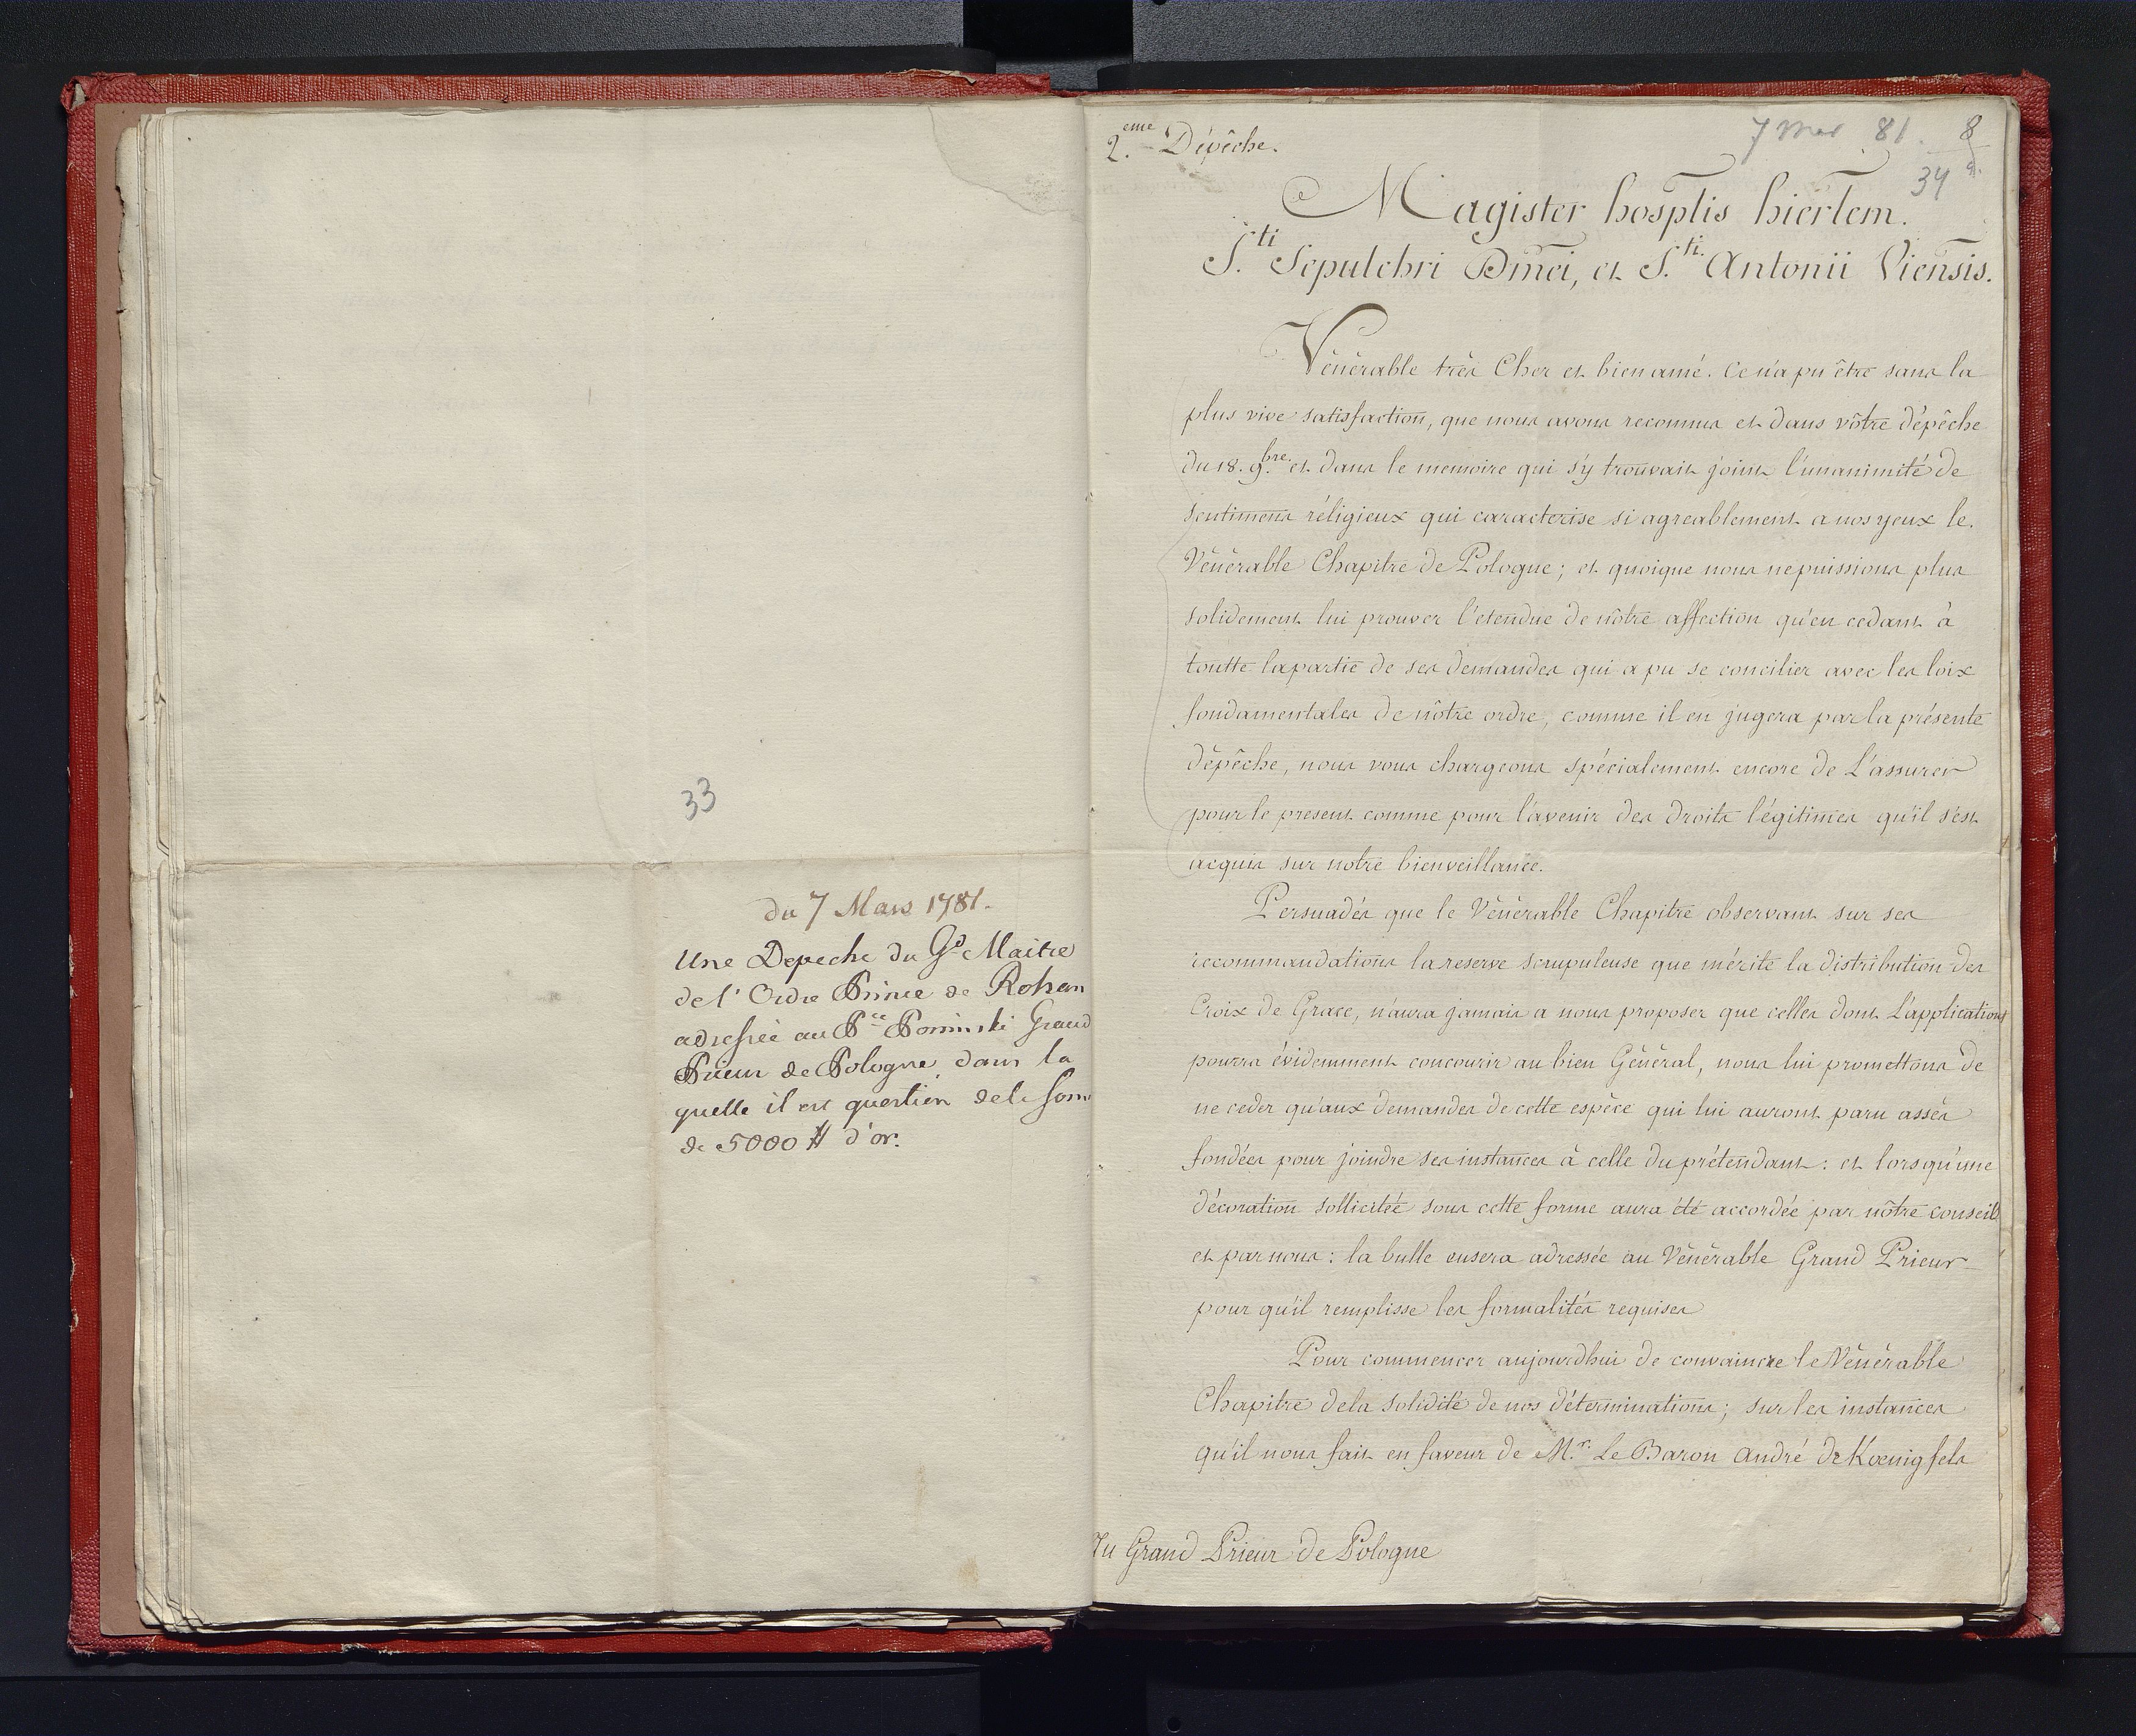 33
du 7 Mars 1781.
Une Depeche du Gd Maitre
de l'Ordre Prince de Rohan
adressée au Pce Poninski Grand
Prieur de Pologne, dans la
quelle il est question de la som
de 5000 # d'or.
2.eme Dépêche.
7 Mar 81. 8
34
Magister hosptis hierlem.
S.ti Sepulchri Dmci, et S.ti Antonii Viensis.
Vénérable très Cher et bien amé. Ce n'a pu être sans la
plus vive satisfaction, que nous avons reconnus et dans vôtre dépêche
du 18. 9.bre et dans le memoire qui s'y trouvait joint l'unanimité de
sentimens réligieux qui caracterise si agreablement a nos yeux le
Vénérable Chapitre de Pologne; et quoique nous ne puissions plus
solidement lui prouver l'etendue de nôtre affection qu'en cedant à
toutte la partie de ses demandes qui a pu se concilier avec les loix
fondamentales de nôtre ordre, comme il en jugera par la présente
dépêche, nous vous chargeons spécialement encore de L'assurer
pour le present comme pour l'avenir des droits légitimes qu'il s'est
acquis sur notre bienveillance.
Persuadés que le Vénérable Chapitre observant sur ses
recommandations la reserve scrupuleuse que mérite la distribution des
Croix de Grace, n'aura jamais a nous proposer que celles dont L'application
pourra évidemment concourir au bien Général, nous lui promettons de
ne ceder qu'aux demandes de cette espèce qui lui auront paru assés
fondées pour joindre ses instances à celle du prétendant: et lorsqu'une
décoration sollicitée sous cette forme aura été accordée par nôtre conseil
et par nous: la bulle en sera adressée au Vénérable Grand Prieur
pour qu'il remplisse les formalités requises
Pour commencer aujourdhui de convaincre le Vénérable
Chapitre de la solidité de nos déterminations; sur les instances
qu'il nous fait en faveur de M.r Le Baron André de Kœnigfels
Au Grand Prieur de Pologne